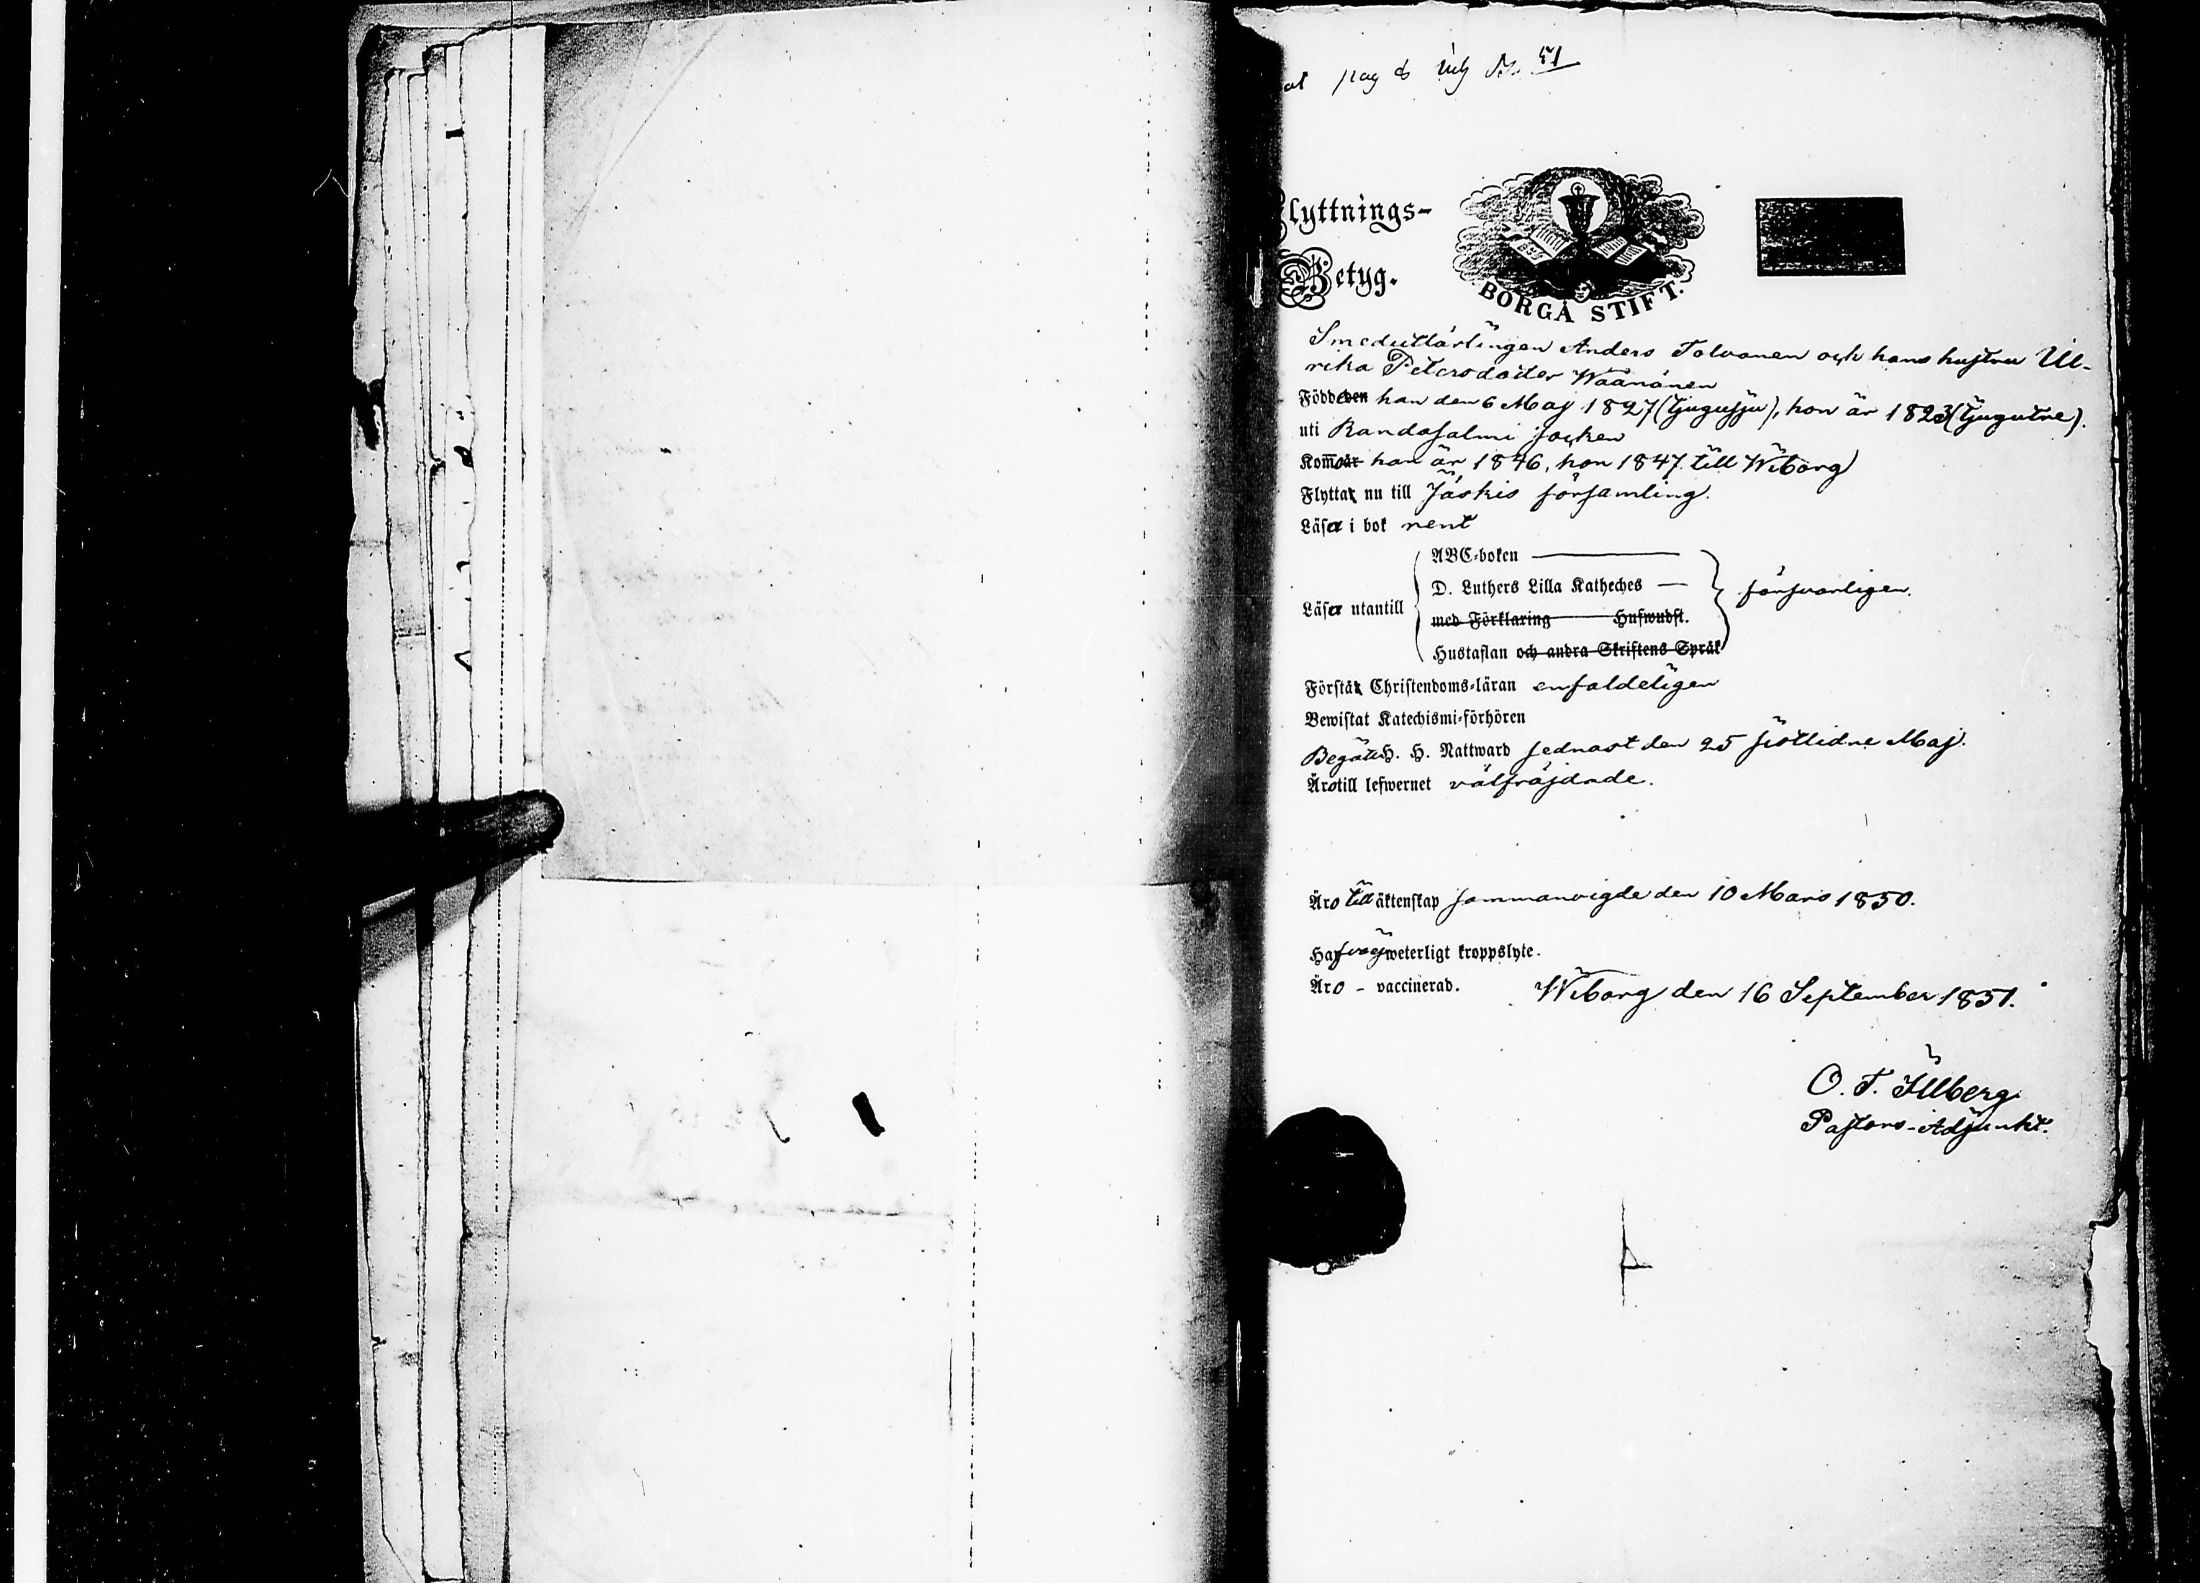 51
Flyttnings-
Betyg.
BORGÅ STIFT.
Smedutlärlingen Anders Tolvanen och hans hustru Ul-
rika Petersdotter Wäänänen
Född den han den 6 Maj 1827 (tjugusju), hon år 1823 (tjugutre).
uti Randasalmi socken
Kom år han år 1846, hon 1847 till Wiborg
Flytta nu till Jäskis församling.
Läsa i bok rent
ABC-boken
D. Luthers Lilla Katheches
med Förklaring Hufwudst.
Hustaflan och andra Skriftens Språk
Läsa utantill
försvarligen.
Förstå Christendoms-läran enfaldeligen
Bewistat Katechismi-förhören
Begått H. H. Nattward sednast den 25 sistlidne Maj.
Äro till lefwernet välfräjdade.
Äro till äktenskap sammanvigde den 10 Mars 1850.
Hafva ej weterligt kroppslyte.
Äro - vaccinerad.
Wiborg den 16 September 1851.
O. F. Illberg
Pastors-Adjunkt.